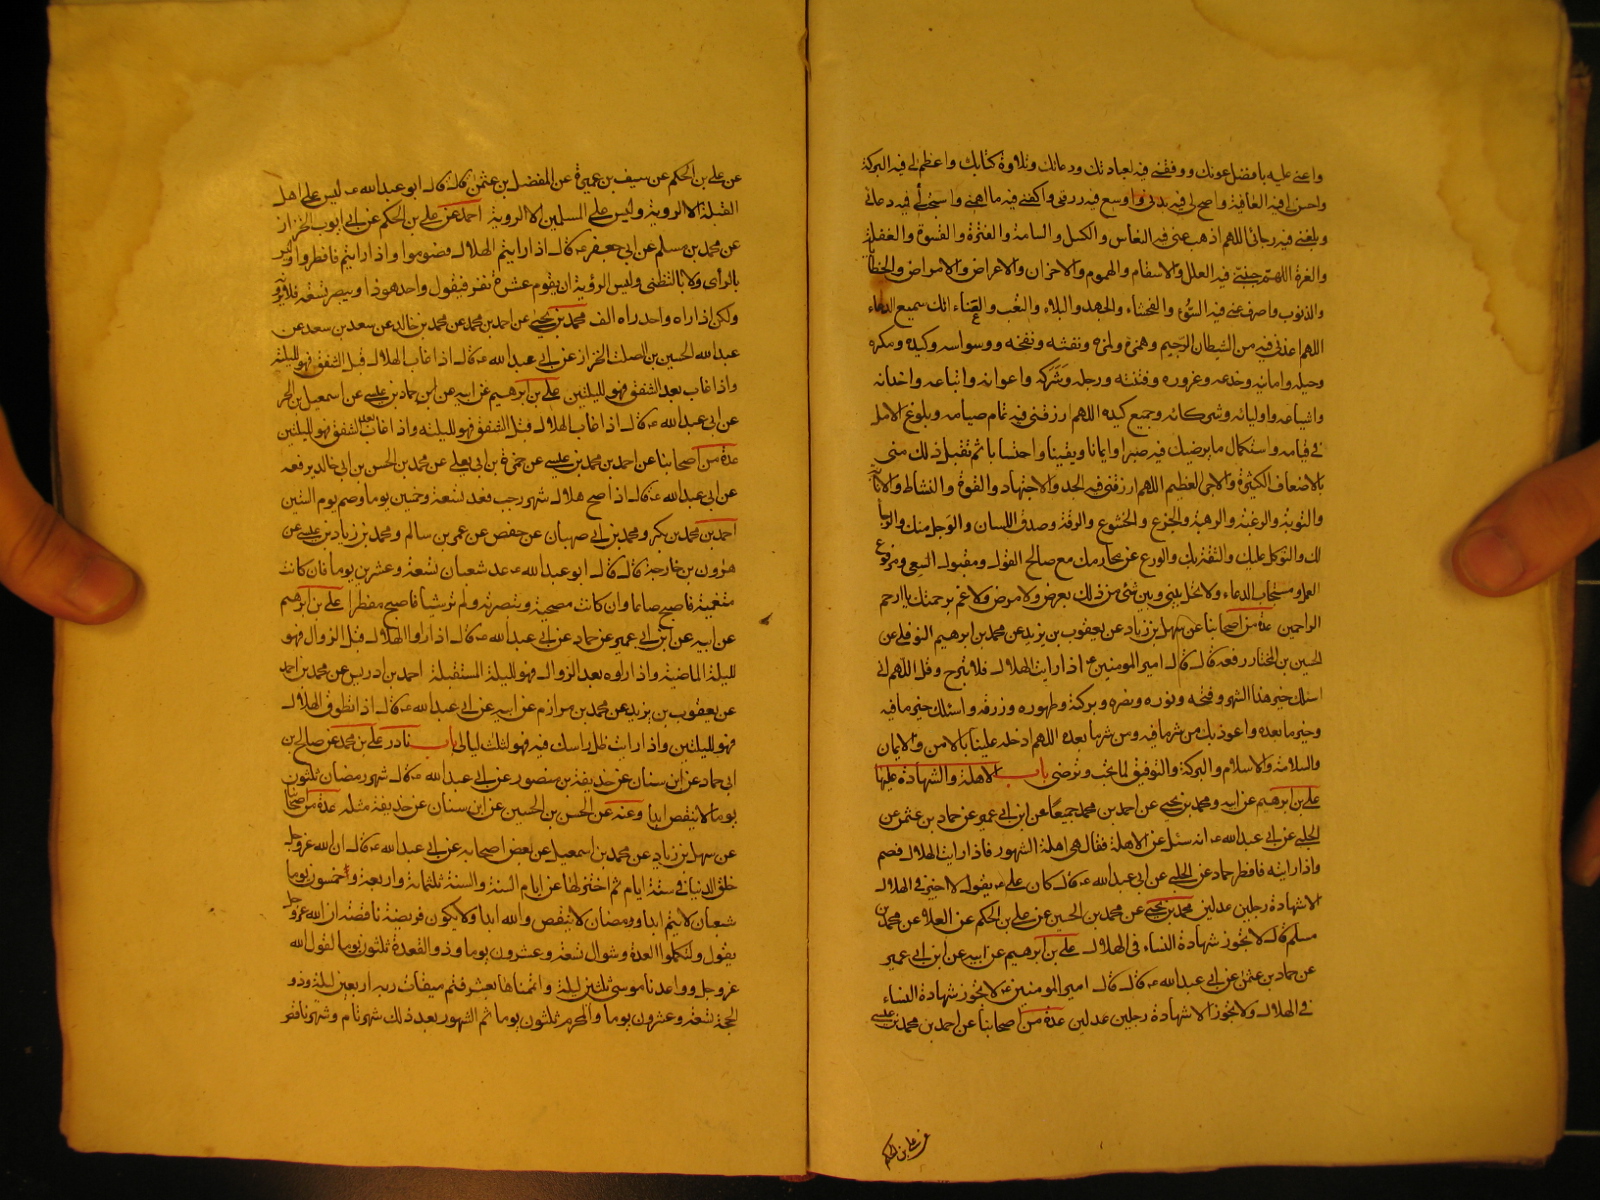 واعني عليه بافضل عونك ووفقني فيه لعبادتك ودعائك وتلاوة كتابك واعظم لي فيه البركة
واحسن لي فيه العافية واصح لي فيه بدني واوسع فيه رزقي واكفني فيه ما اهمني واستجب لي فيه دعائي
وبلغني فيه رجائي اللهم اذهب عني فيه النعاس والكسل والسامة والفترة والقسوة والغفلة
والغرة اللهم جنبني فيه العلل والاسقام والهموم والاحزان والاعراض والامراض والخطايا
والذنوب واصرف عني فيه السوء والفحشاء والجهد والبلاء والتعب والعناء انك سميع الدعاء
اللهم اعذني فيه من الشيطان الرجيم وهمزه ولمزه ونفثه ونفخه ووسواسه وكيده ومكره
وحيله وامانيه وخدعه وغروره وفتنته ورجله وشركه واعوانه واتباعه واخدانه
واشياعه واوليائه وشركائه وجميع كيده اللهم ارزقني فيه تمام صيامه وبلوغ الامل
في قيامه واستكمال ما يرضيك فيه صبرا وايمانا ويقينا واحتسابا ثم تقبل ذلك مني
بالاضعاف الكثيرة والاجر العظيم اللهم ارزقني فيه الجد والاجتهاد والقوة والنشاط والانابة
والتوبة والرغبة والرهبة والجزع والخشوع والرقة وصدق اللسان والوجل منك والرجا
لك والتوكل عليك والثقة بك والورع عن محارمك مع صالح القول ومقبول السعي ومرفوع
العمل ومستجاب الدعاء ولا تحل بيني وبين شئ من ذلك بعرض ولا مرض ولا غم برحمتك يا ارحم
الراحمين عدة من اصحابنا عن سهل بن زياد عن يعقوب بن يزيد عن محمد بن ابرهيم النوفلي عن
الحسين بن المختار رفعه قال قال امير المومنين ع اذا رايت الهلال فلا تبرح وقل اللهم اني
اسئلك خير هذا الشهر وفتحه ونوره ونصره وبركته وطهوره ورزقه واسئلك خير ما فيه
وخير ما بعده واعوذ بك من شر ما فيه ومن شر ما بعده اللهم ادخله علينا بالامن والايمان
والسلامة والاسلام والبركة والتوفيق لما تحب وترضى باب الاهلة والشهادة عليها
علي بن ابرهيم عن ابيه ومحمد بن يحيى عن احمد بن محمد جميعا عن ابن ابي عمير عن حماد بن عثمن عن
الحلبي عن ابي عبد الله ع انه سئل عن الاهلة فقال هي اهلة الشهور فاذا رايت الهلال فصم
واذا رايته فافطر حماد عن الحلبي عن ابي عبد الله ع قال كان علي ع يقول لا اجيز في الهلال
الا شهادة رجلين عدلين محمد بن يحيى عن محمد بن الحسين عن علي بن الحكم عن العلا عن محمد بن
مسلم قال لا تجوز شهادة النساء في الهلال علي بن ابرهيم عن ابيه عن ابن ابي عمير
عن حماد بن عثمن عن ابي عبد الله ع قال قال امير المومنين ع لا تجوز شهادة النساء
في الهلال ولا تجوز الا شهادة رجلين عدلين عدة من اصحابنا عن احمد بن محمد بن عيسى
عن علي بن الحكم
عن علي بن الحكم عن سيف بن عميرة عن المفضل بن عثمن قال قال ابو عبد الله ع ليس على اهل
القبلة الا الروية وليس على المسلمين الا الروية احمد عن علي بن الحكم عن ابي ايوب الخزاز
عن محمد بن مسلم عن ابي جعفر ع قال اذا رايتم الهلال فصوموا واذا رايتم فافطروا وليس
بالرأى ولا بالتظني وليس الرؤية ان يقوم عشرة نفر فيقول واحد هو ذا وينظر تسعة فلا يرونه
ولكن اذا راه واحد راه الف محمد بن يحيى عن احمد بن محمد عن محمد بن خالد عن سعد بن سعد عن
عبد الله الحسين بن الصلت الخزاز عن ابي عبد الله ع قال اذا غاب الهلال قبل الشفق فهو لليلة
واذا غاب بعد الشفق فهو لليلتين علي بن ابرهيم عن ابيه عن ابن حماد بن عيسى عن اسمعيل بن الحر
عن ابي عبد الله ع قال اذا غاب الهلال قبل الشفق فهو لليلته واذا غاب بعد الشفق فهو لليلتين
عدة من اصحابنا عن احمد بن محمد بن عيسى عن حمزة بن ابي يعلى عن محمد بن الحسن بن ابي خالد يرفعه
عن ابي عبد الله ع قال اذا صح هلال شهر رجب فعد تسعة وخمسين يوما وصم يوم الستين
احمد بن محمد بن بكر ومحمد بن ابي صهبان عن حفص عن عمر بن سالم ومحمد بن زياد بن عيسى عن
هرون بن خارجة قال قال ابو عبد الله ع عد شعبان تسعة وعشرين يوما فان كانت
متغيمة فاصبح صائما وان كانت مصحية وتبصرته ولم تر شيئا فاصبح مفطرا علي بن ابرهيم
عن ابيه عن ابن ابي عمير عن حماد عن ابي عبد الله ع قال اذا راوا الهلال قبل الزوال فهو
لليلة الماضية واذا راوه بعد الزوال فهو لليلة المستقبلة احمد بن ادريس عن محمد بن احمد
عن يعقوب بن يزيد عن محمد بن مرازم عن ابيه عن ابي عبد الله ع قال اذا تطوق الهلال
فهو لليلتين واذا رايت ظل راسك فيه فهو لثلث ليالي باب نادر علي بن محمد عن صالح بن
ابي حماد عن ابن سنان عن حذيفة بن منصور عن ابي عبد الله ع قال شهر رمضان ثلثون
يوما لا ينقص ابدا وعنه عن الحسن بن الحسين عن ابن سنان عن حذيفة مثله عدة من اصحابنا
عن سهل بن زياد عن محمد بن اسمعيل عن بعض اصحابه عن ابي عبد الله ع قال ان الله عز وجل
خلق الدنيا في ستة ايام ثم اختزلها عن ايام السنة والسنة ثلثمائة واربعة وخمسون يوما
شعبان لا يتم ابدا ورمضان لا ينقص والله ابدا ولا يكون فريضة ناقصة ان الله عز وجل
يقول ولتكملوا العدة وشوال تسعة وعشرون يوما وذو القعدة ثلثون يوما لقول الله
عز وجل وواعدنا موسى ثلثين ليلة واتممناها بعشر فتم ميقات ربه اربعين ليلة وذو
الحجة تسعة وعشرون يوما والمحرم ثلثون يوما ثم الشهور بعد ذلك شهر تام وشهر ناقص